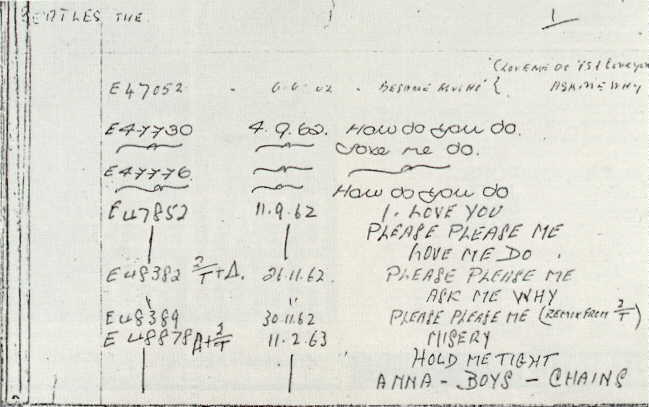 BEATLES THE. 1
(LOVE ME DO "PS I love you
E47052 - 6.6.62 - BESAME MUCHO { ASK ME WHY
E47730 4.9.62. How do you do.
Love me do.
E47776
How do you do
E47852 11.9.62 P.S. LOVE YOU
PLEASE PLEASE ME
LOVE ME DO.
E48382 2/T + A. 26.11.62. PLEASE PLEASE ME
ASK ME WHY
E48389 " 30.11.62 PLEASE PLEASE ME (REMIX FROM 2/T)
E48878 A+2/T 11.2.63 MISERY
HOLD ME TIGHT
ANNA - BOYS - CHAINS